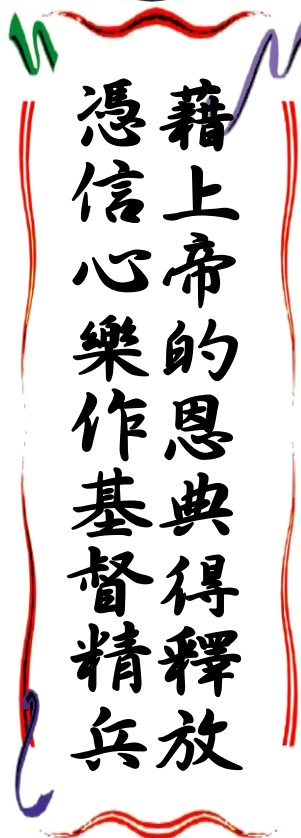 藉上帝的恩典得釋放
憑信心樂作基督精兵